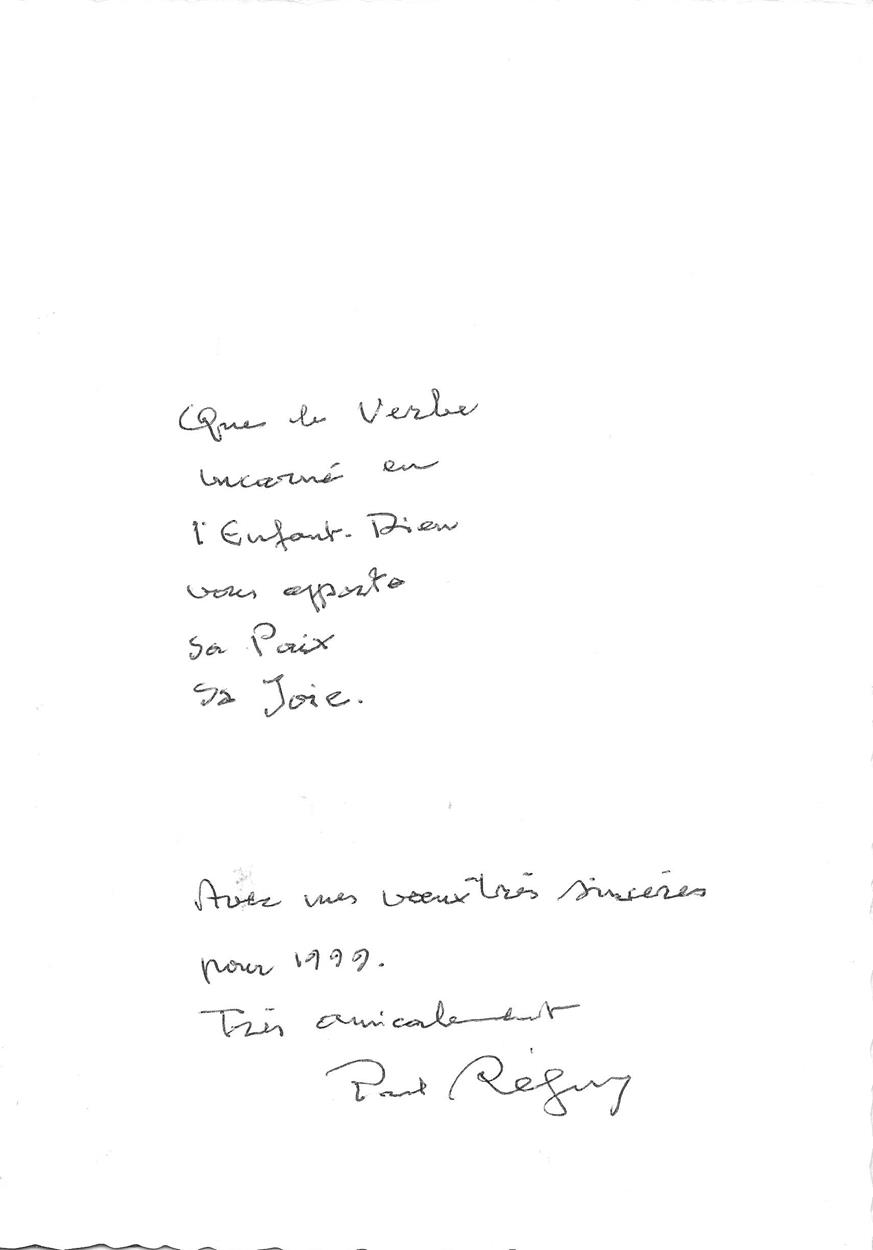 Que le Verbe
incarné en
l'Enfant-Dieu
vous apporte
sa Paix
sa Joie.
Avec mes voeux très sincères
pour 1999.
Très amicalement
Paul Réguy